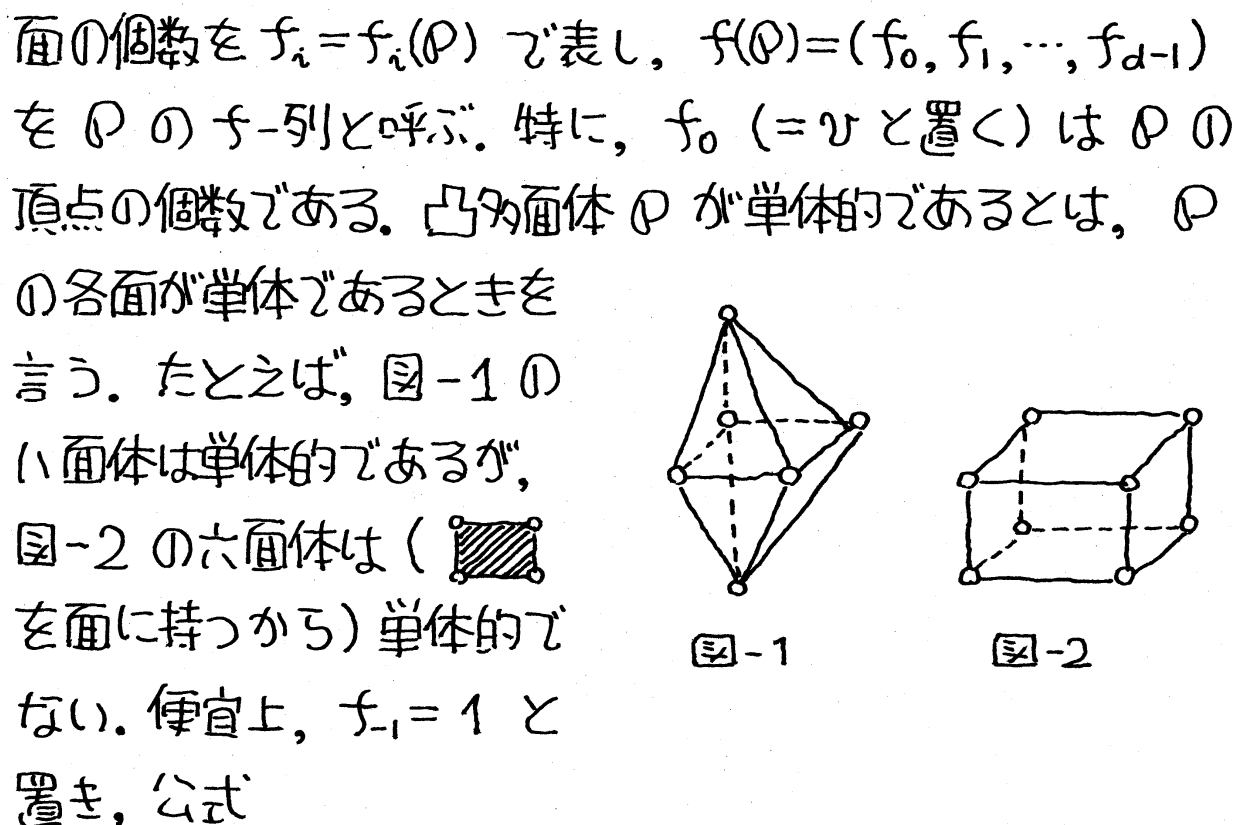 面の個数を fᵢ=fᵢ(P) で表し, f(P)=(f₀, f₁, …, f_{d-1})
を P の f-列と呼ぶ. 特に, f₀ (=v と置く) は P の
頂点の個数である. 凸多面体 P が単体的であるとは, P
の各面が単体であるときを
言う. たとえば, 図-1 の
八面体は単体的であるが,
図-2 の六面体は (
を面に持つから) 単体的で
ない. 便宜上, f₋₁ = 1 と
置き, 公式
図-1
図-2